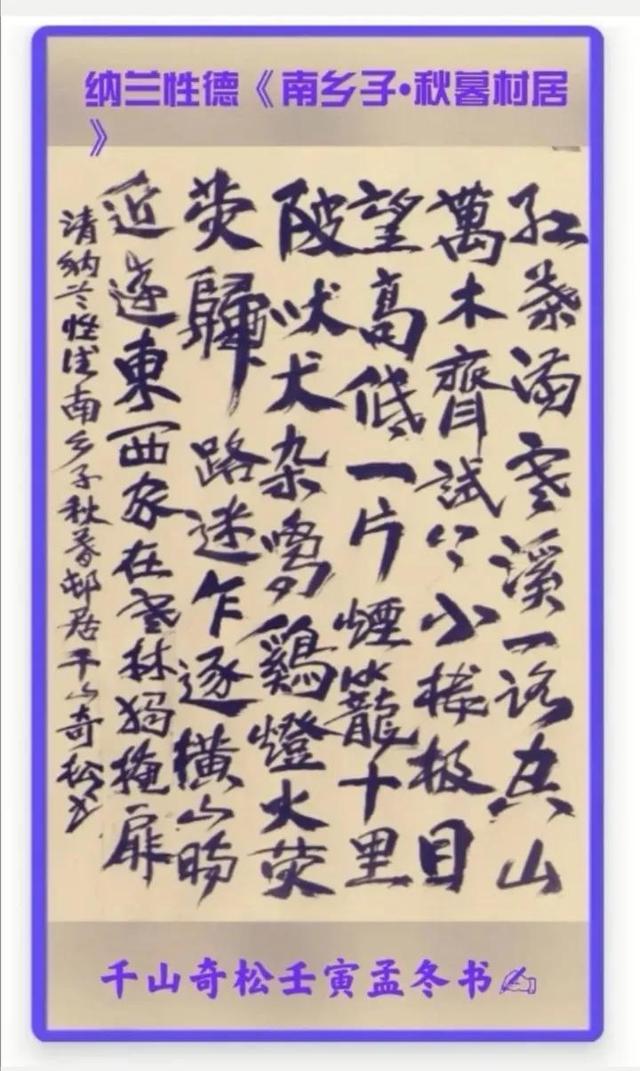 纳兰性德《南乡子•秋暮村居
》
红葉满寒溪一路空山
萬木齊試上小楼极目
望高低一片煙籠十里
陂吠犬杂鸣鷄燈火荧
荧歸路迷乍逐横山時
近遠東西家在寒林独掩扉
清纳兰性德南乡子秋暮邨居千山奇松书
千山奇松壬寅孟冬书✍